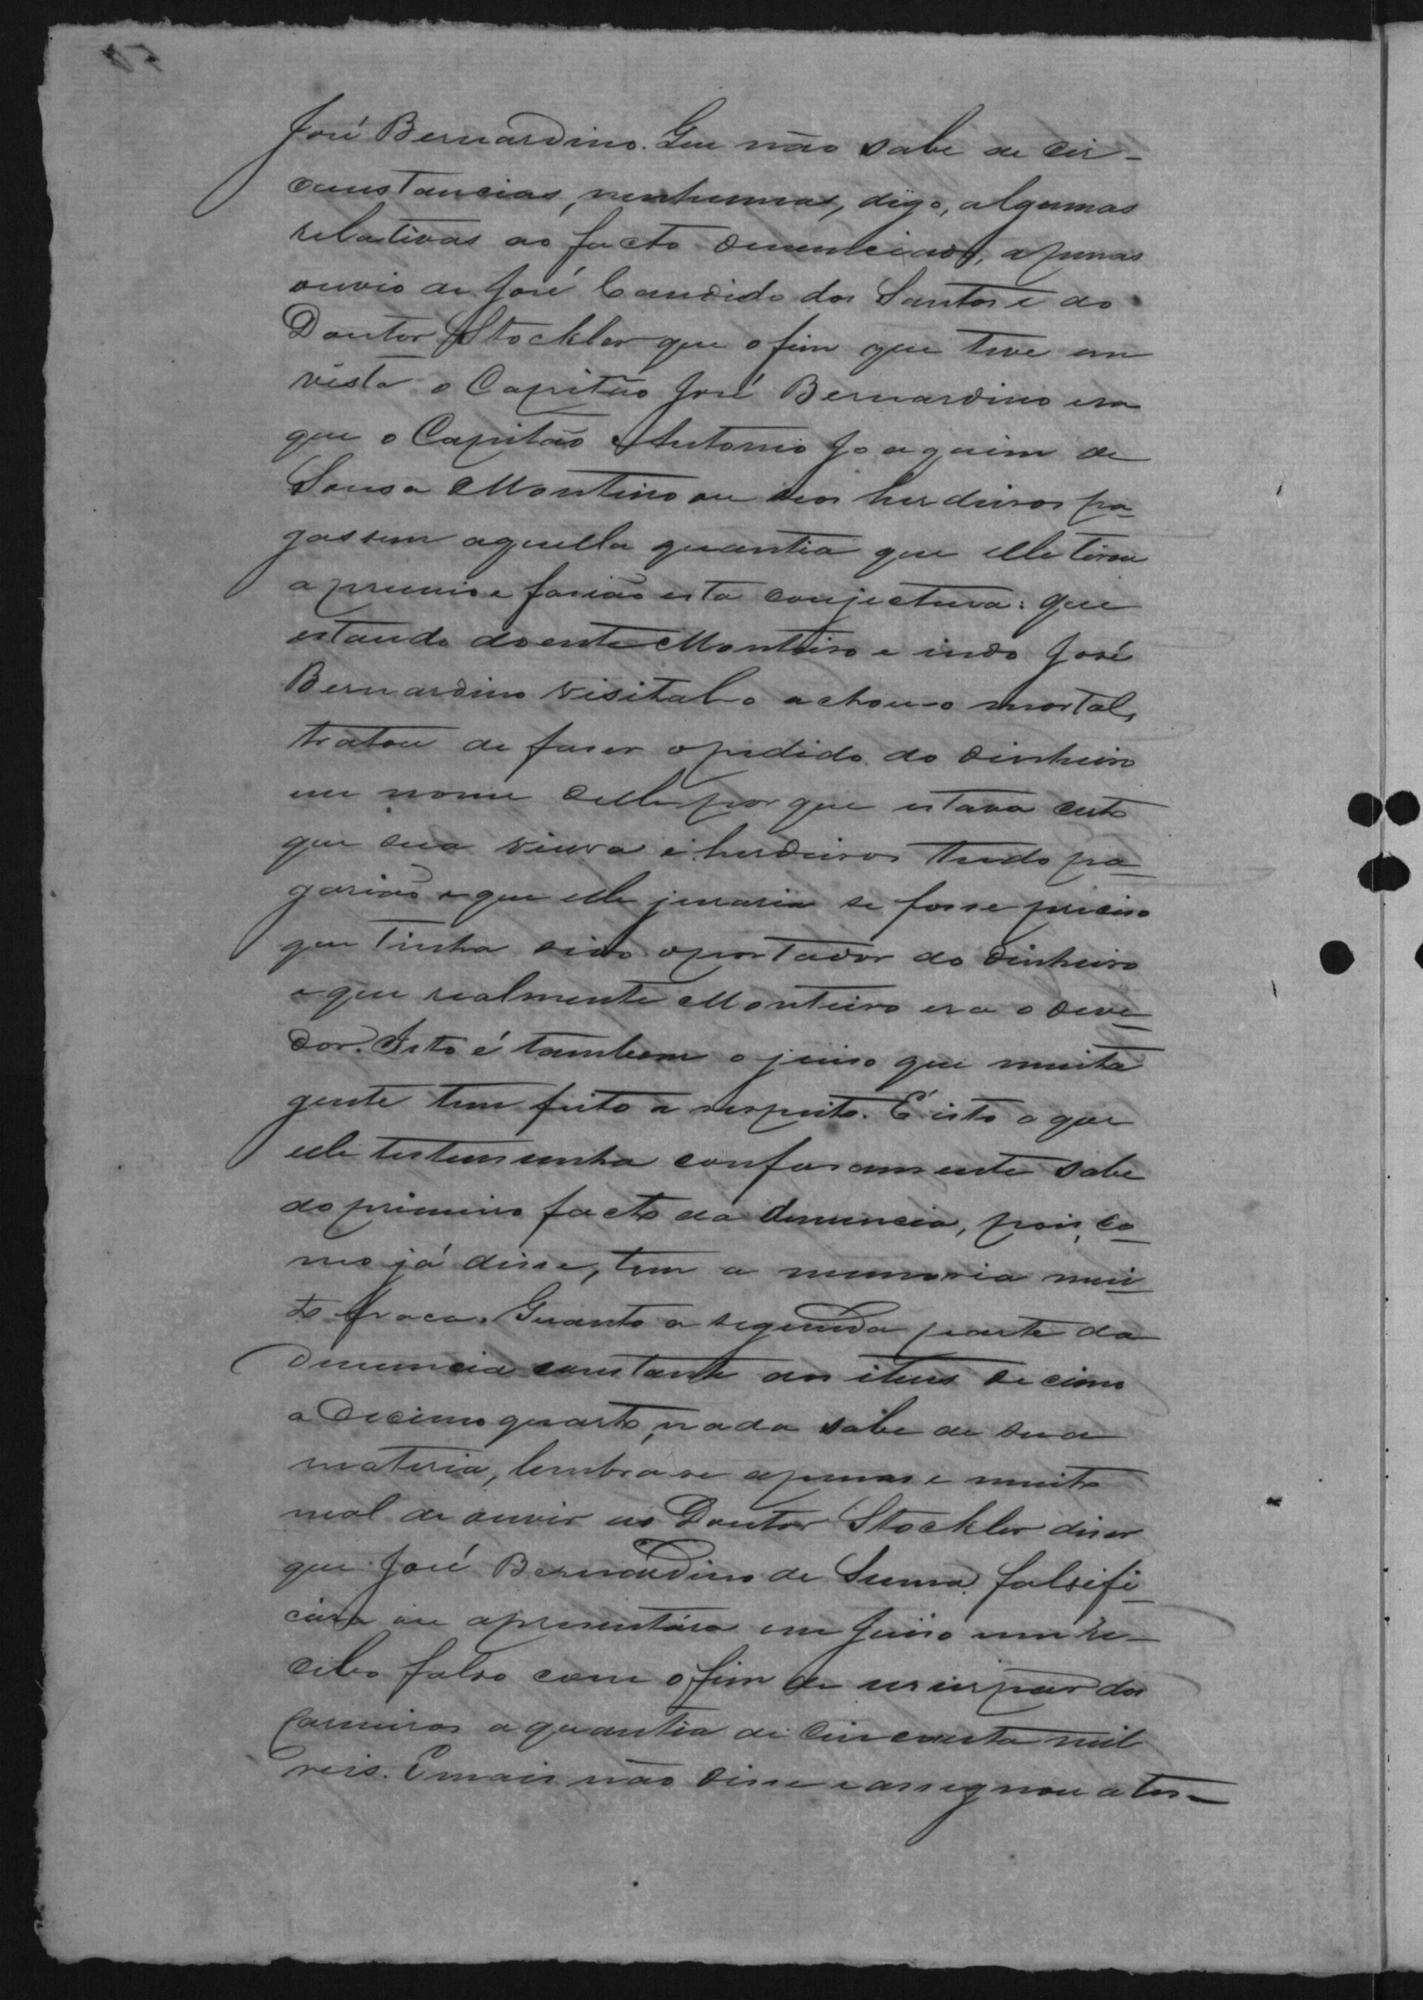 José Bernardino. Que não sabe de cir-
cunstancias, nenhumas, digo, algumas
relativas ao facto denunciado, apenas
ouvio de José Candido dos Santos e do
Doutor Stockler que o fim que teve em
vista o Capitão José Bernardino era
que o Capitão Antonio Joaquim de
Sousa Monteiro ou seos herdeiros pa-
gassem aquella quantia que elle tirou
a premio e fasião esta conjectura: que
estando doente Monteiro e indo José
Bernardino visital-o achou-o mortal,
tratou de faser o pedido do dinheiro
em nome delle porque estava certo
que sua viuva e herdeiros tudo pa-
garião e que elle juraria se fosse preciso
que tinha sido o portador do dinheiro
e que realmente Monteiro era o deve-
dor. Isto é tambem o juiso que muita
gente tem feito a respeito. É isto o que
elle testemunha confusamente sabe
do primeiro facto da denuncia, pois, co-
mo já disse, tem a memoria mui-
to fraca. Quanto a segunda parte da
denuncia constante dos itens decimo
a decimo quarto, nada sabe de sua
materia, lembra-se apenas e muito
mal de ouvir ao Doutor Stockler diser
que José Bernardino de Senna falsifi-
cára ou apresentára em Juiso um re-
cibo falso com o fim de usurpar dos
Carneiros a quantia de cincoenta mil
reis. E mais não disse e assignou a tes-